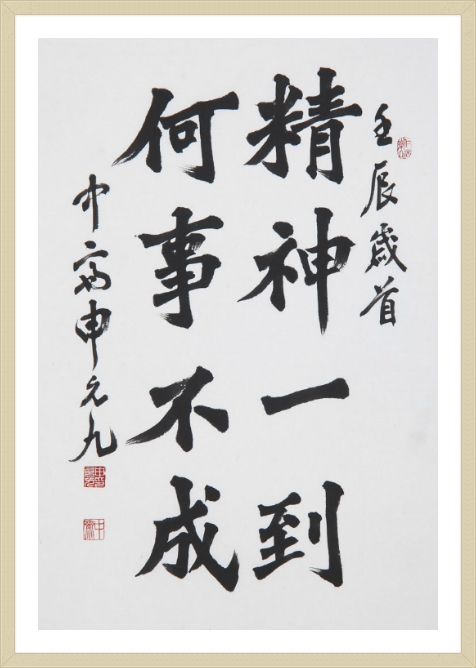 壬辰歲首
精神一到
何事不成
中齋申元九